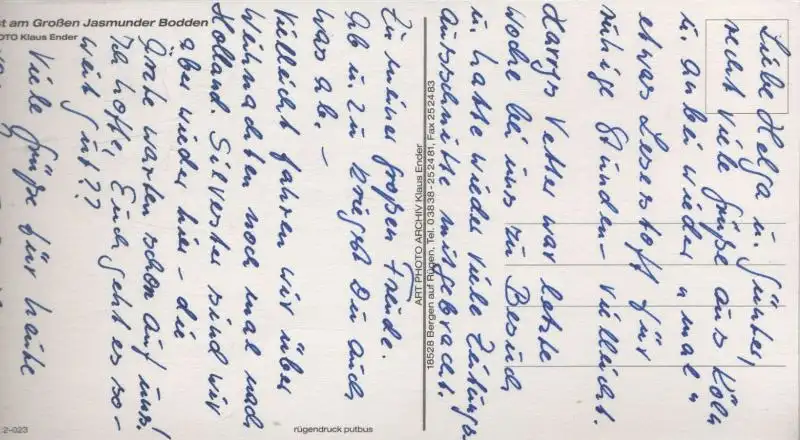 Liebe Helga u. Günter,
recht viele Grüße aus Köln
u. anbei wieder "mal"
etwas Lesestoff für
ruhige Stunden – vielleicht.
Harrys Vetter war letzte
Woche bei uns zu Besuch
u. hatte wieder viele Zeitungs-
ausschnitte mitgebracht.
Zu meiner großen Freude.
Ab u. zu kriegst Du auch
was ab. –
Vielleicht fahren wir über
Weihnachten noch mal nach
Holland. Silvester sind wir
aber wieder hier – die
Gräte warten schon auf uns!
Ich hoffe, Euch geht es so-
weit gut??
Viele Grüße für heute
st am Großen Jasmunder Bodden
OTO Klaus Ender
ART PHOTO ARCHIV Klaus Ender
18528 Bergen auf Rügen, Tel. 03838-252481, Fax 252483
2-023
rügendruck putbus